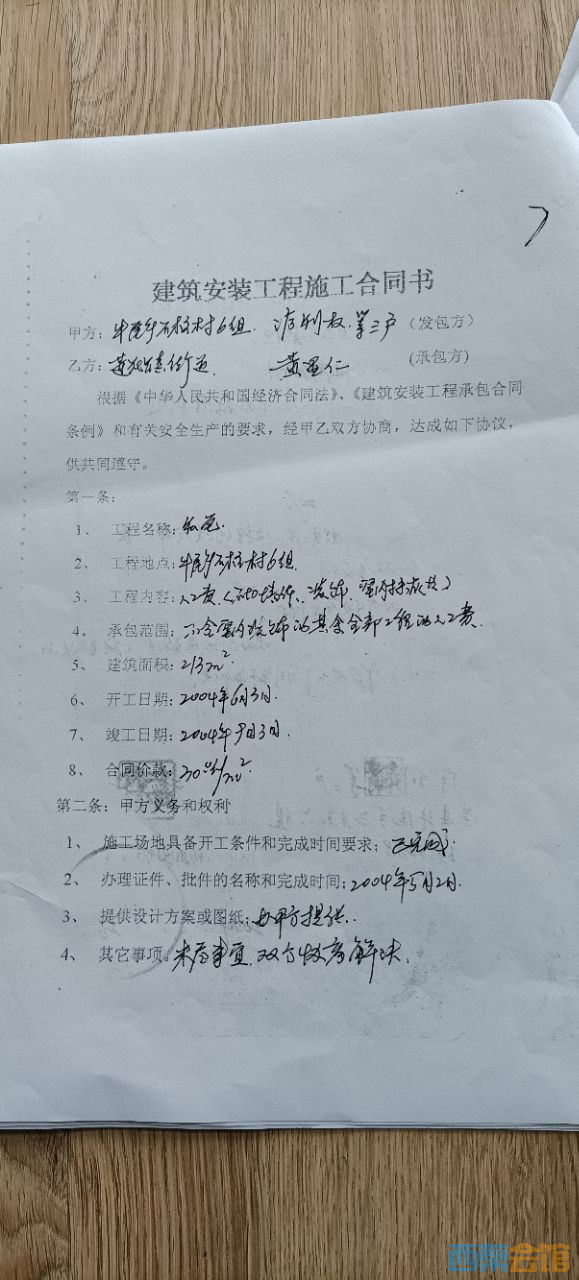 建筑安装工程施工合同书
甲方：牛 乡石柱村6组. 等三户（发包方）
乙方： 黄 仁 (承包方)
根据《中华人民共和国经济合同法》、《建筑安装工程承包合同
条例》和有关安全生产的要求，经甲乙双方协商，达成如下协议，
供共同遵守。
第一条：
1、 工程名称：
2、 工程地点：牛 乡石柱村6组.
3、 工程内容：人工费
4、 承包范围：不含室内 其余全部工程的人工费.
5、 建筑面积：213m².
6、 开工日期：2004年6月3日.
7、 竣工日期：2004年 月3日.
8、 合同价款： /m².
第二条：甲方义务和权利
1、 施工场地具备开工条件和完成时间要求：已完成.
2、 办理证件、批件的名称和完成时间：2004年5月2日.
3、 提供设计方案或图纸：由甲方提供..
4、 其它事项。未尽事宜.双方 解决.
西京会馆